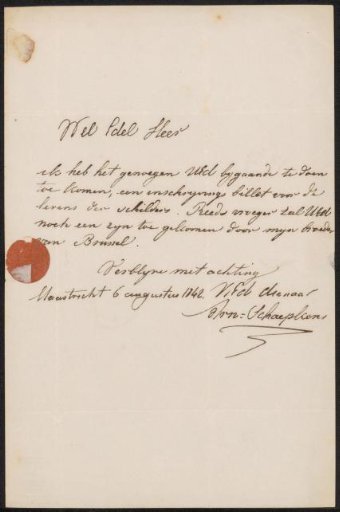 Wel Edel Heer
ik heb het genoegen UEd bygaande te doen
toe komen, een inschryvings billet voor de
levens der schilders. Reeds vroeger zal UEd
noch een zyn toe gekomen door myn broeder
van Brussel.
Verblyve met achting
Maastricht 6 augustus 1842. UEd dienaar
Arn: Schaepkens